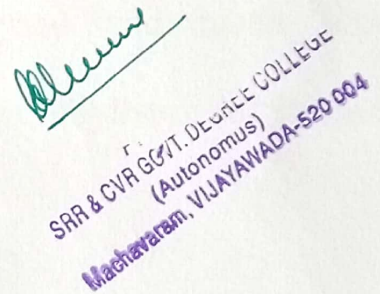 SRR & CVR GOVT. DEGREE COLLEGE
(Autonomus)
Machavaram, VIJAYAWADA-520 004